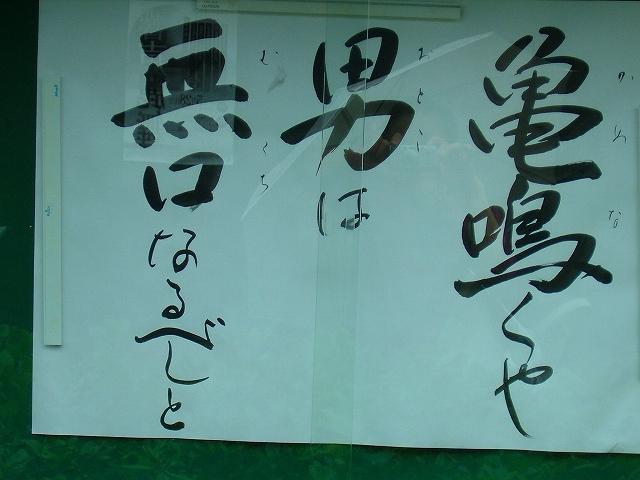 亀鳴くや
かめな
男は
おとこ
無口なるべしと
むくち